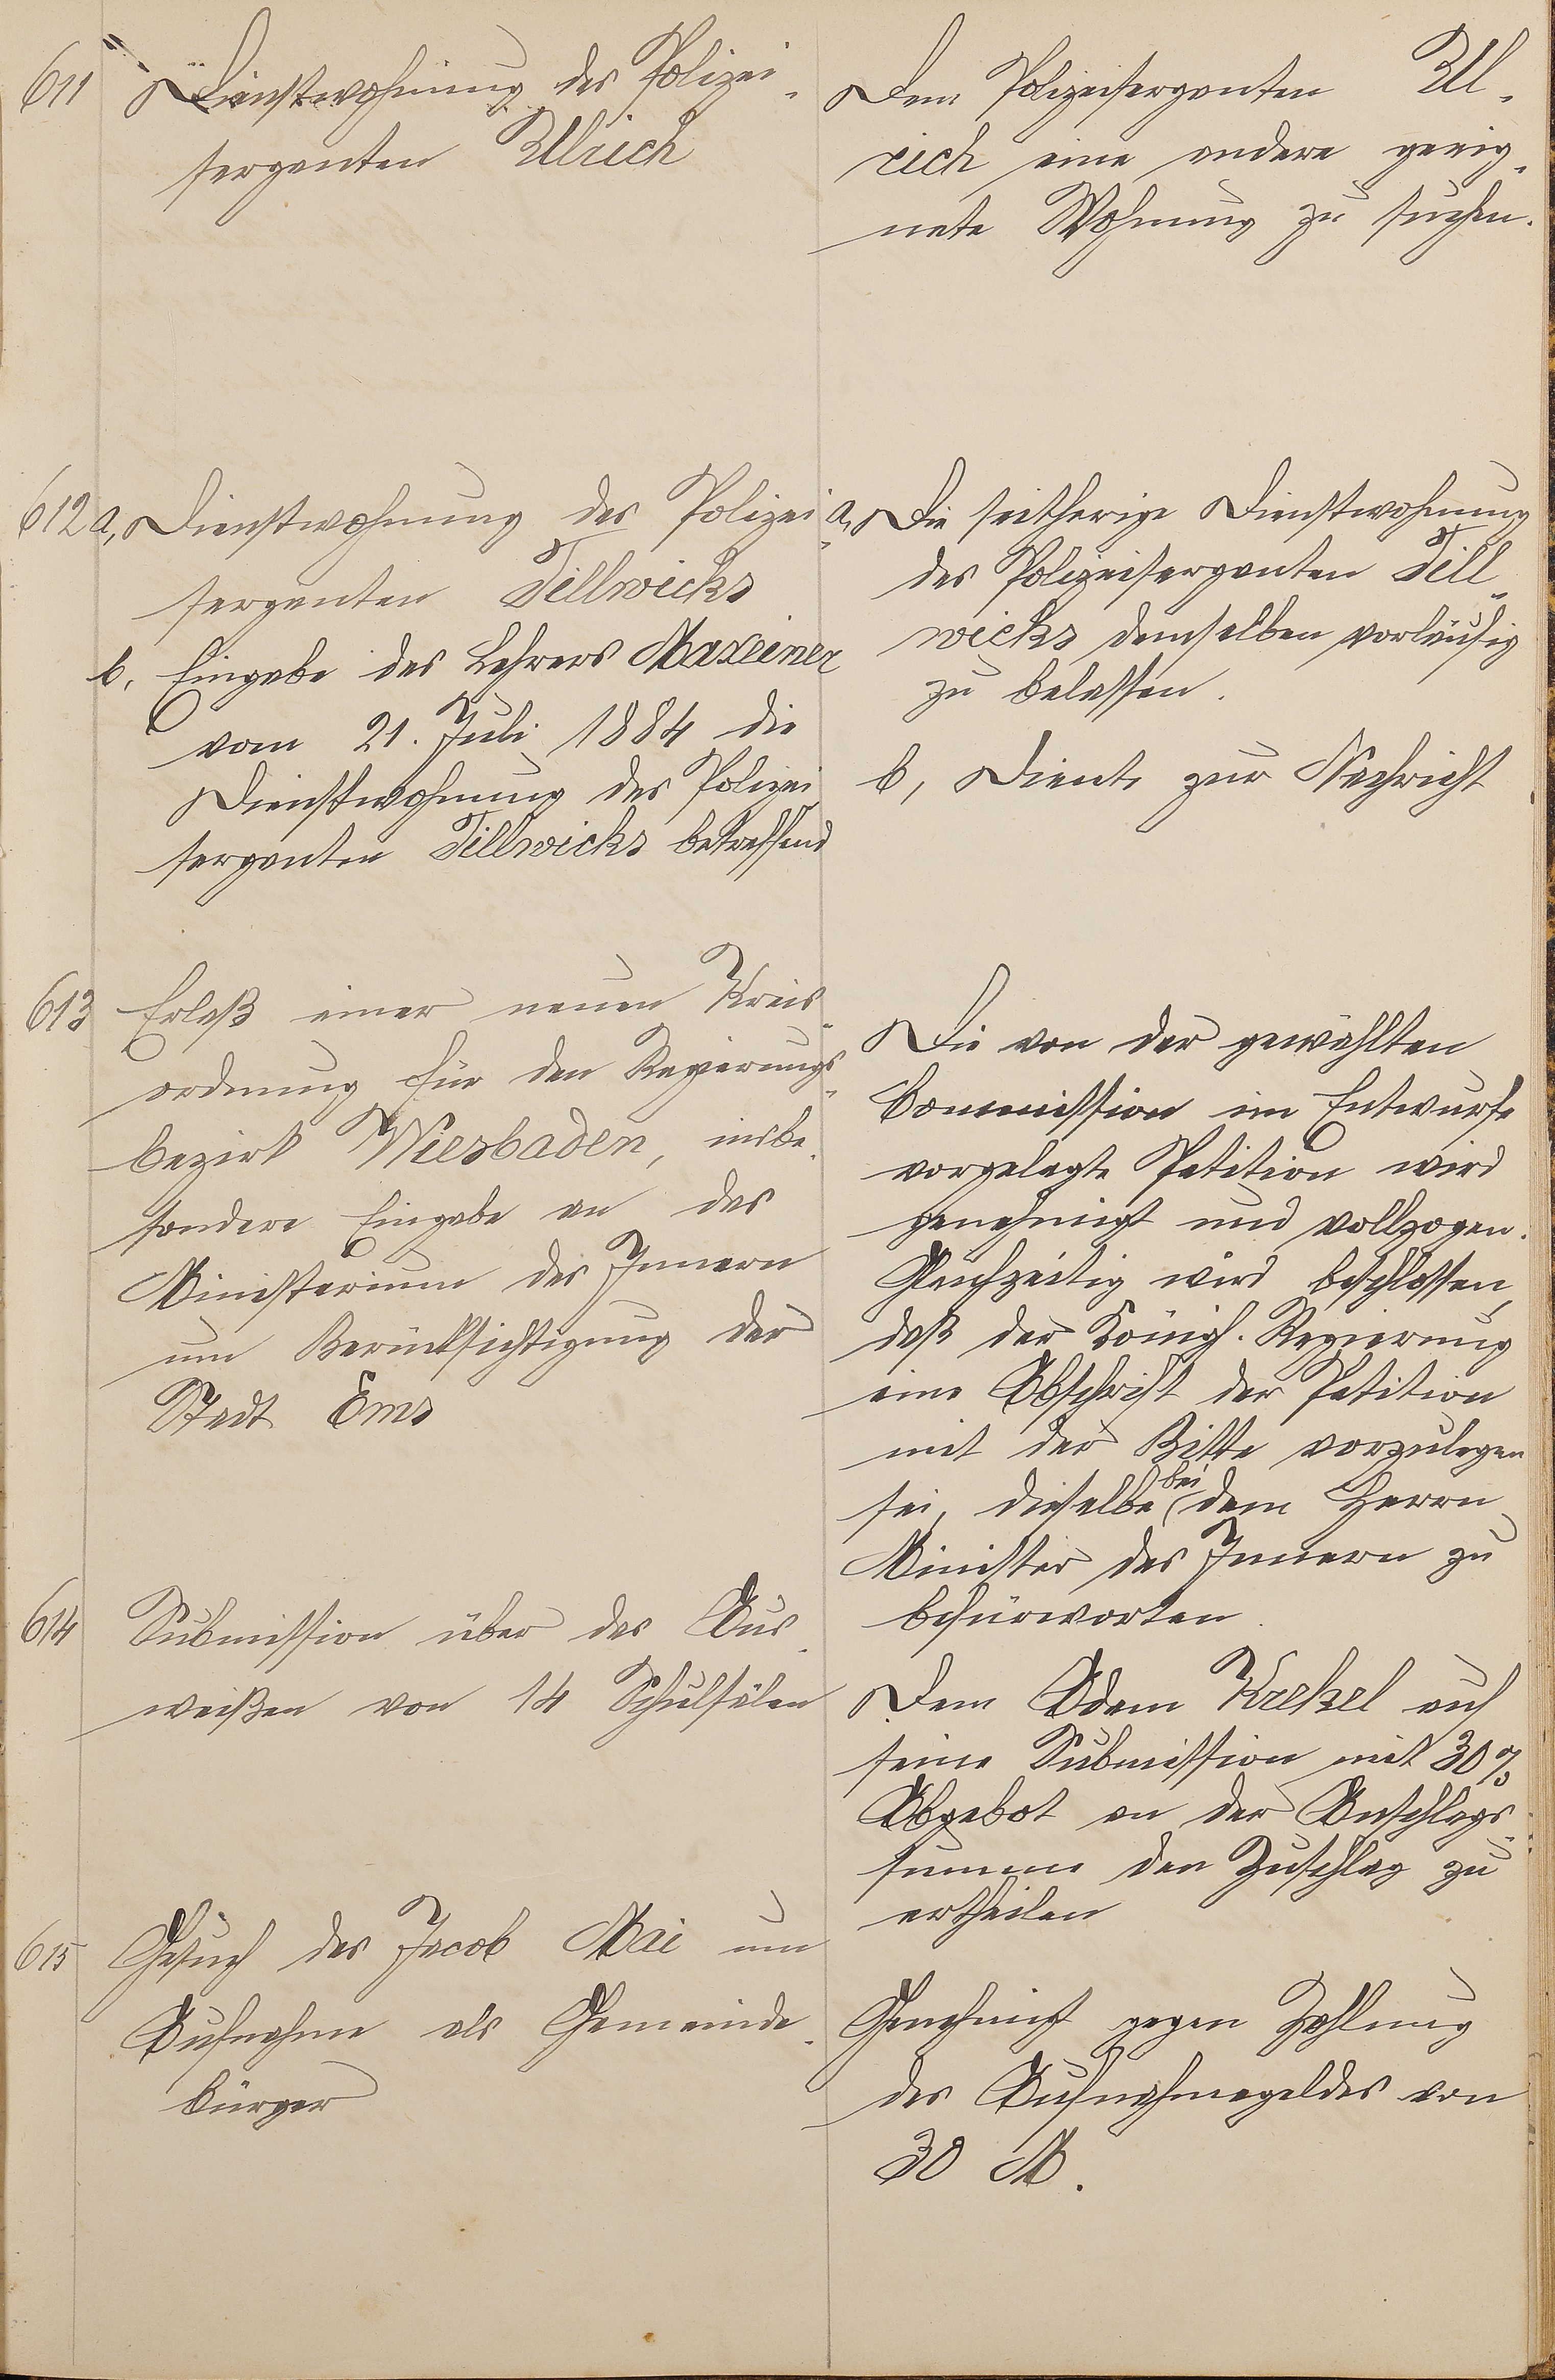 611
Dienstwohnung des Polizei-
sergenten Ullrich
Dem Polizeisergenten Ul-
rich eine andere geeig-
nete Wohnung zu suchen.
612 a, Dienstwohnung des Polizei-
sergenten Tillwicks
b, Eingabe des Lehrers Maxeiner
vom 21. Juli 1884 die
Dienstwohnung des Polizei
sergenten Tillwicks betreffend
a, Die seitherige Dienstwohnung
des Polizeisergenten Till-
wicks demselben vorläufig
zu belassen.
b, Diente zur Nachricht
613
Erlaß einer neuen Kreis-
ordnung für den Regierungs-
bezirk Wiesbaden, insbe-
sondere Eingabe an das
Ministerium des Innern
um Berücksichtigung der
Stadt Ems
Die von der gewählten
Commission im Entwurfe
vorgelegte Petition wird
genehmigt und vollzogen.
Gleichzeitig wird beschlossen,
daß der Königl. Regierung
eine Abschrift der Petition
mit der Bitte vorzulegen
sei, dieselbe bei dem Herrn
Minister des Innern zu
befürworten.
614
Submission über das Aus-
weißen von 14 Schulsälen
Dem Adam Krekel auf
seine Submission mit 30 %
Abgebot an der Anschlags-
summe den Zuschlag zu
ertheilen
615
Gesuch des Jacob Mai um
Aufnahme als Gemeinde-
bürger
Genehmigt gegen Zahlung
des Aufnahmegeldes von
30 M.